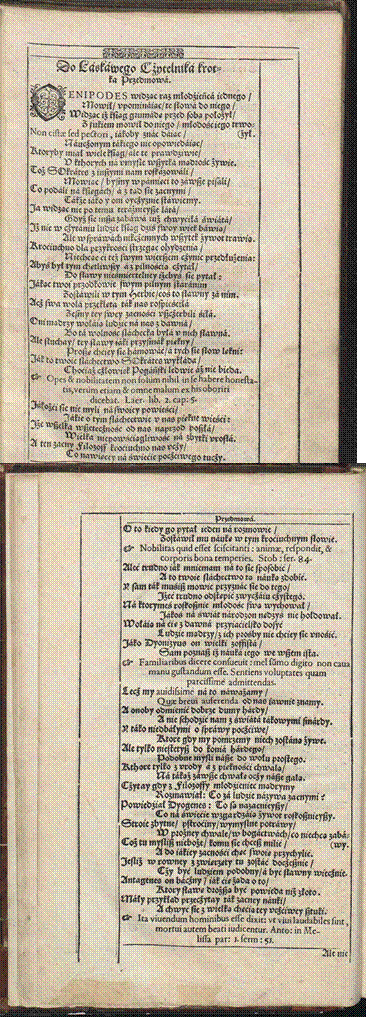 Do Láskáwego Cżytelniká krot-
ka Przedmowá.
ENIPODES widząc raz młodzieńcá iednego /
Mowił / vpomináiąc / te słowá do niego /
Widząc iż ksiąg gromádę przed sobą położył /
Z iákiem mowił do niego / młodość iego trwo-
Non cistæ sed pectori, iákoby znáć dáiąc / (żył.
Náuczonym tákiego nie opowiedáiąc /
Ktoryby miał wiele ksiąg / ále te prawdziwie /
V ktorych ná vmyśle wszytká mądrość żywie.
Też SOkrátes z inszymi nam roskázowáli /
Mowiąc / byśmy w pámięci to záwsze pisáli /
Co podáli ná księgách / á z tąd sie zacnymi /
Tákże też y oni oyczyznie stáwiemy.
Ja widząc nie po temu teráznieysze látá /
Gdyż sie insza zabáwá iuż chwyciłá áwiátá /
Jż nie w cżytániu ludzie ksiąg dziś swoy wiek báwią /
Ale w spráwách nikcżemnych wszytek żywot trawią.
Krociuchno dla przykrości strzegąc obrydzenia /
Niechcąc ci też swym wierszem cżynić przedłużenia:
Abyś był tym chetliwszy á z pilnością cżytał /
Do sławy niesmiertelney iżebyś sie pytał:
Jákąc twoi przodkowie swym pilnym stárániem
Zostáwili w tym Herbie / coś to sławny zá nim.
Acż swa wola przeklęta ták nas rospuściłá
Żeśmy tey swey zacności vszcżerbili siłá.
Oni mądrzy woláią ludzie ná nas z dawná /
Bo tá wolność śláchecka byłá v nich sławná.
Ale słuchay / tey sławy iáki przysmák piękny /
Proszę chciey sie hámowáć / á tych sie słow lekni:
Ják to twoie ślachectwo SOkrátes wykłáda /
Chociaż człowiek Pogáński ledwie áż nie biéda.
☞ Opes & nobilitatem non solùm nihil in se habere honesta-
tis, verùm etiam & omne malum ex his oboriri
dicebat. Laer. lib. 2. cap: 5.
Jákożci sie nie myli ná swoicy powieści /
Jákie o tym śláchectwie v nas piękne wieści:
Jże wszelka wszetecżność od nas naprzod poszłá /
Wielka niepowściągliwość ná zbytki wrosłá.
A ten zacny Filozoff krociuchno nas vczy /
Co nawięcey ná świecie poczciwego tucży.
Przedmowá.
O to kiedy go pytał ieden ná rozmowie /
Zostáwił mu náukę w tym krociuchnym słowie.
☞ Nobilitas quid esset sciscitanti: animæ, respondit, &
corporis bona temperies. Stob: ser. 84.
Aleć trudno iák mniemam ná to sie sposobić /
A to twoie śláchectwo tá náuką zdobić.
Y sam ták musisz mowić przyznáć sie do tego /
Jże trudno odstąpić zwycżáiu cżystego.
Ná ktorymeś roskosznie młodość swą wychował /
Jákoś ná świát národzon nędzyś nie hołdowáł.
Woláią ná cię z dawná przyiacielsko dosyć
Ludzie mądrzy / z ich prośby nie chciey sie wnosić.
Jáko Dyonizyus on wielki zoffistá /
Sam poznasz iż náuká iego we wszem istá.
☞ Familiaribus dicere consueuit: mel summo digito non caua
manu gustandum esse. Sentiens voluptates quam
parcissimè admittendas.
Lecż my auidissimè ná to náważamy /
Quæ breui auferenda od nas sławnie znamy.
A onoby odmienić dobrze dumy hárdy /
A nie schodzić nam z świátá tákowymi smárdy.
Y táko niedbáłymi o spráwy pocżciwe /
Ktore gdy my pomrzemy niech zostáną żywe.
Ale tylko niestetyż do koniá hárdego /
Podobne myśli násze do wołu prostego.
Kthore tylko z vrody á z piękności chwałá /
Ná tákąż záwsze chwałę ochy násze gałá.
Cżytay gdy z Filozoffy młodzieniec mądrymy
Rozmawiał: Co zá ludzie názywa zacnymi?
Powiedział Dyogenes: To są nazacnieyszy /
Co ná świecie wzgardzáią żywot roskosznieyszy.
Stroie zbytne / pstrociny / wymyślne potráwy /
W prożney chwale / w bogáctwách / co niechcą zabá-
Coż tu myślisz niebożę / komu sie chcesz milić / (wy.
A do iákiey zacności chcesz swoie przychylić.
Jesliż w rowney z zwierzęty tu zostáć docżeśnie /
Cży być ludziem podobny / á być sławny wiecżnie.
Antagenes on bacżny / iák cię żáda o to /
Ktory sławę droższą być powieda niż złoto.
Máły przykład przeczytay ták zacney náuki /
A chwyć sie z wielką chęcią tey vcżciwey sztuki.
☞ Ita viuendum hominibus esse dixit: vt viui laudabiles sint,
mortui autem beati iudicentur. Anto: in Me-
lissa par: 1. serm: 51.
Ale nie